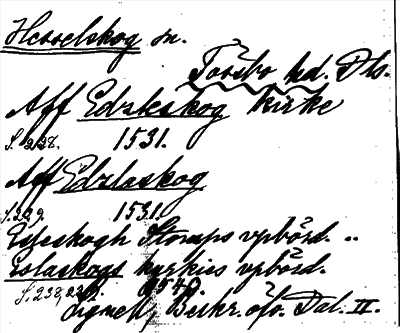 Hesselskog sn.
Tössbo hd. Dls.
Aff Edzleskog kirke
S. 228. 1531.
Aff Edzlaskog
S. 229. 1531.
Esleskogh Stomps vpbörd. ..
Eslaskogs kyrkies vpbörd.
S. 238, 1540.
Lignell, Beskr. öfv. Dal. II.